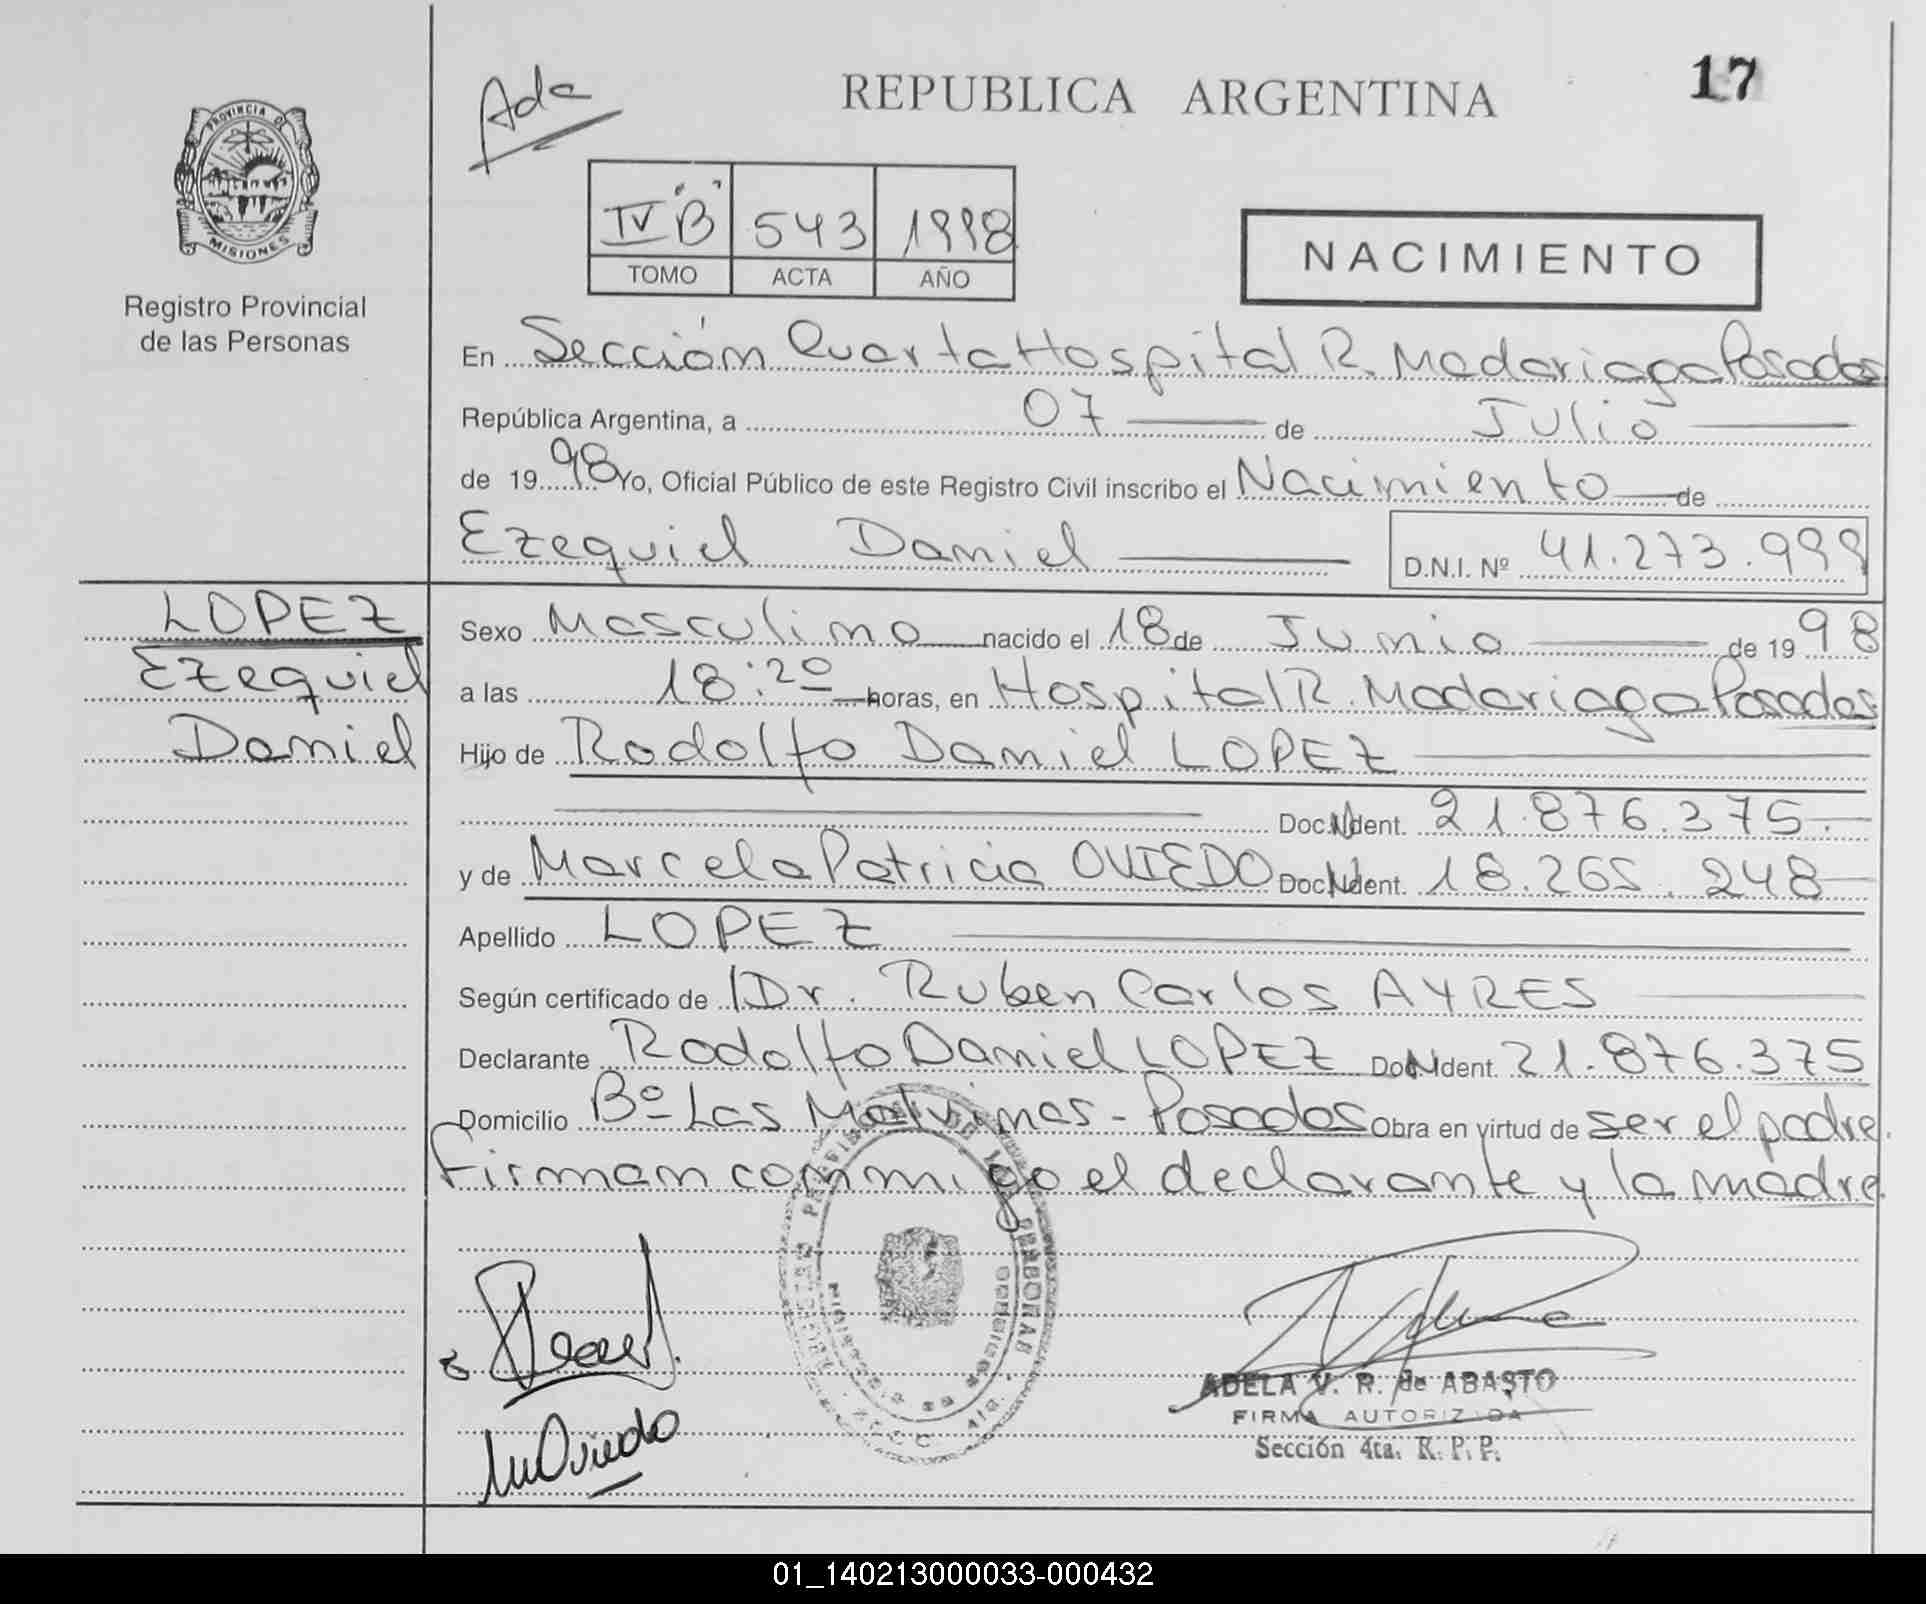 Ada
REPUBLICA ARGENTINA
17
PROVINCIA DE
MISIONES
Registro Provincial
de las Personas
IV "B" 543 1998
TOMO ACTA AÑO
NACIMIENTO
En Sección Cuarta Hospital R. Madariaga Posadas
República Argentina, a 07 de Julio
de 1998 Yo, Oficial Público de este Registro Civil inscribo el Nacimiento de
Ezequiel Daniel D.N.I. Nº 41.273.999
LOPEZ
Ezequiel
Daniel
Sexo Masculino nacido el 18 de Junio de 1998
a las 18:20 horas, en Hospital R. Madariaga Posadas
Hijo de Rodolfo Daniel LOPEZ
Doc. Ident. 21.876.375.
y de Marcela Patricia OVIEDO Doc. Ident. 18.265.248
Apellido LOPEZ
Según certificado de Dr. Ruben Carlos AYRES
Declarante Rodolfo Daniel LOPEZ Doc. Ident. 21.876.375
Domicilio Bº Las Malvinas - Posadas Obra en virtud de ser el padre.
Firman conmigo el declarante y la madre.
M Oviedo
ADELA V. R. de ABASTO
FIRMA AUTORIZADA
Sección 4ta. R. P. P.
01_140213000033-000432